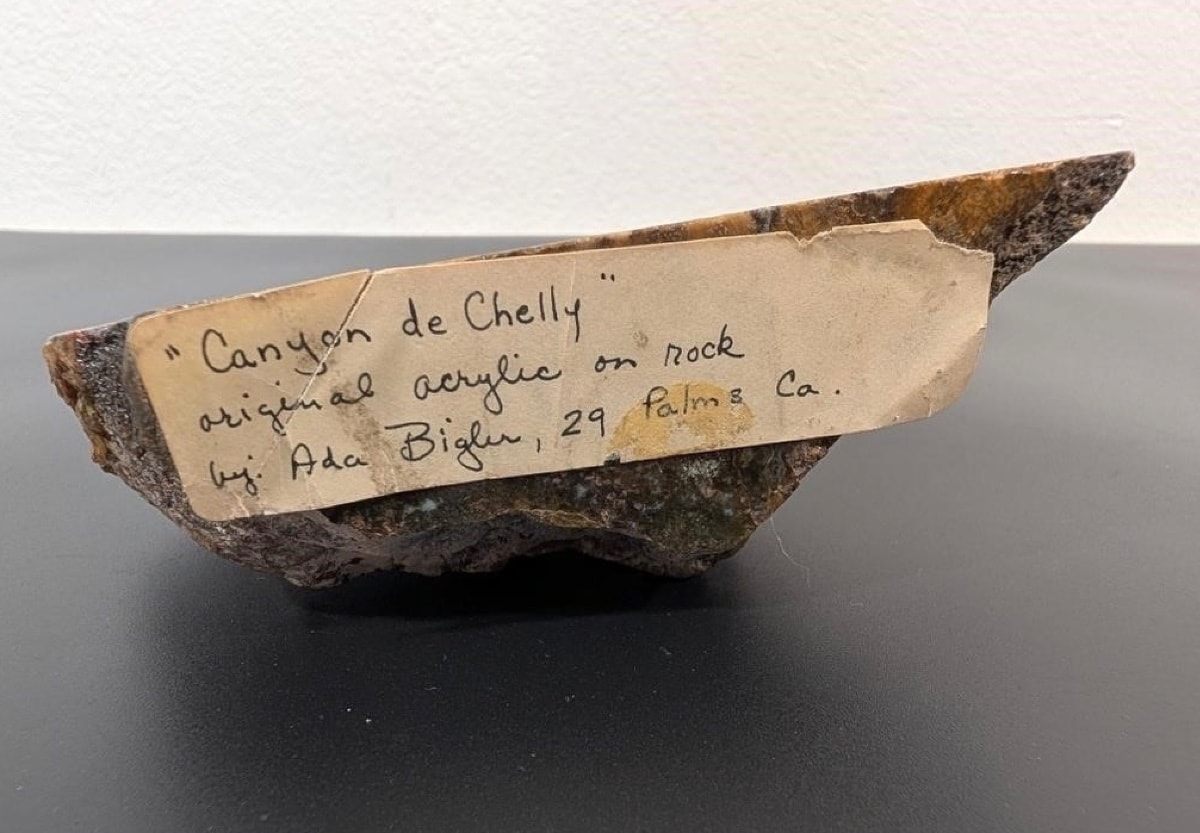 "Canyon de Chelly"
original acrylic on rock
by: Ada Bigler, 29 Palms Ca.